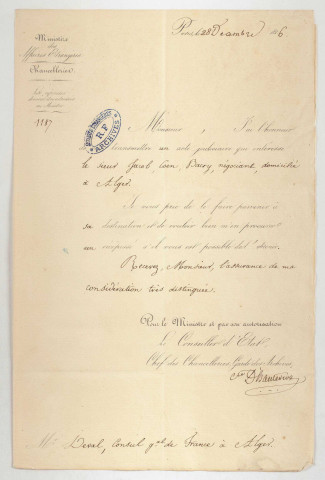 Paris, 28 Décembre 1826
Ministère
des
Affaires Étrangères
Chancellerie
1187
R.F
ARCHIVES
Monsieur, J'ai l'honneur
de vous transmettre un acte judiciaire qui intéresse
le sieur Jacob Coen Bacry, négociant, domicilié
à Alger.
Je vous prie de le faire parvenir à
sa destination et de vouloir bien m'en procurer
un récépissé s'il vous est possible de l'obtenir.
Recevez, Monsieur, l'assurance de ma
considération très distinguée.
Pour le Ministre et par son autorisation
Le Conseiller d'État
Chef des Chancelleries Garde des Archives
D'Hauterive
Mr. Deval, Consul gal de France à Alger.